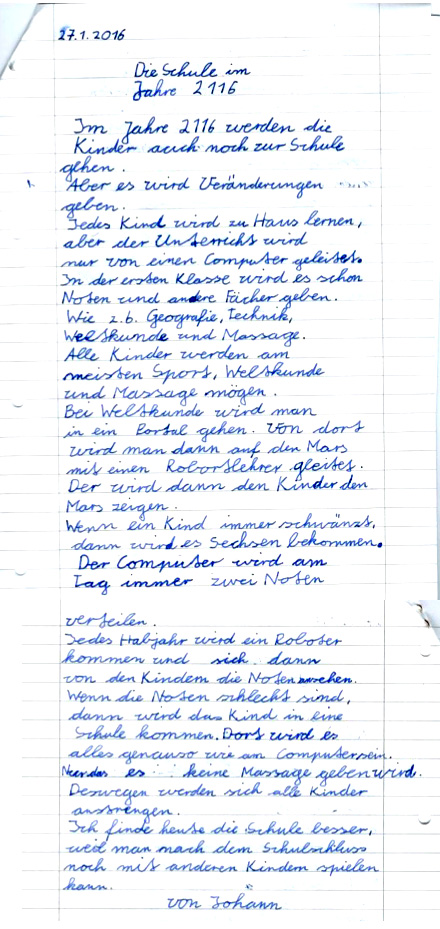 27.1.2016
Die Schule im
Jahre 2116
Im Jahre 2116 werden die
Kinder auch noch zur Schule
gehen.
Aber es wird Veränderungen
geben.
Jedes Kind wird zu Haus lernen,
aber der Unterricht wird
nur von einen Computer geleitet.
In der ersten Klasse wird es schon
Noten und andere Fächer geben.
Wie z.b. Geografie, Technik,
Weltkunde und Massage.
Alle Kinder werden am
meisten Sport, Weltkunde
und Massage mögen.
Bei Weltkunde wird man
in ein Portal gehen. Von dort
wird man dann auf den Mars
mit einen Robortslehrer gleitet.
Der wird dann den Kinder den
Mars zeigen.
Wenn ein Kind immer schwänzt,
dann wird es Sechsen bekommen.
Der Computer wird am
Tag immer zwei Noten
verteilen.
Jedes Habjahr wird ein Roboter
kommen und sich dann
von den Kindern die Noten ansehen.
Wenn die Noten schlecht sind,
dann wird das Kind in eine
Schule kommen. Dort wird es
alles genauso wie am Computer sein.
Nur das es keine Massage geben wird.
Deswegen werden sich alle Kinder
anstrengen.
Ich finde heute die Schule besser,
weil man nach dem Schulschluss
noch mit anderen Kindern spielen
kann.
von Johann